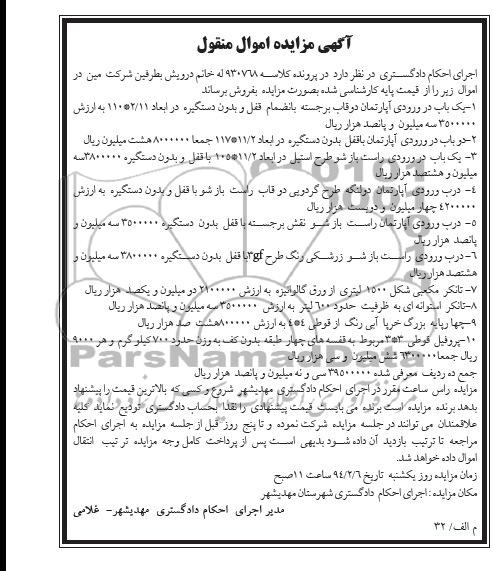 آگهی مزایده اموال منقول
اجرای احکام دادگستری در نظر دارد در پرونده کلاسه ۹۳۰۷۶۸ له خانم درویش بطرفین شرکت مین در
اموال زیر را از قیمت پایه کارشناسی شده بصورت مزایده بفروش برساند
۱-یک باب در ورودی آپارتمان دوقاب برجسته بانضمام قفل و بدون دستگیره در ابعاد ۲/۱۱*۱۱۰ به ارزش
۳۵۰۰۰۰۰ سه میلیون و پانصد هزار ریال
۲-دو باب در ورودی آپارتمان باقفل بدون دستگیره در ابعاد ۱۱/۲*۱۱۷ جمعا ۸۰۰۰۰۰۰ هشت میلیون ریال
۳- یک باب در ورودی راست باز شو طرح استیل در ابعاد ۱۱/۲*۱۰۵ با قفل و بدون دستگیره ۳۸۰۰۰۰۰سه
میلیون و هشتصد هزار ریال
۴- درب ورودی آپارتمان دولنگه طرح گردویی دو قاب راست باز شو با قفل و بدون دستگیره به ارزش
۴۲۰۰۰۰۰ چهار میلیون و دویست هزار ریال
۵- درب ورودی آپارتمان راست باز شو نقش برجسته با قفل بدون دستگیره ۳۵۰۰۰۰۰ سه میلیون و
پانصد هزار ریال
۶-درب ورودی راست باز شو زرشکی رنگ طرح ۳gfبا قفل بدون دستگیره ۳۸۰۰۰۰۰ سه میلیون و
هشتصد هزار ریال
۷- تانکر مکعبی شکل ۱۵۰۰ لیتری از ورق گالوانیزه به ارزش ۲۱۰۰۰۰۰ دو میلیون و یکصد هزار ریال
۸-تانکر استوانه ای به ظرفیت حدود ۶۰۰ لیتر به ارزش ۳۵۰۰۰۰۰ سه میلیون و پانصد هزار ریال
۹-چهارپایه بزرگ خرپا آبی رنگ از قوطی ۴*۴ به ارزش ۸۰۰۰۰۰هشت صد هزار ریال
۱۰-پروفیل قوطی ۳*۳مربوط به قفسه های چهار طبقه بدون کف به وزن حدود ۷۰۰ کیلو گرم و هر ۹۰۰۰
ریال جمعا۶۳۰۰۰۰۰ شش میلیون و سی هزار ریال
جمع ده ردیف معرفی شده ۳۹۵۰۰۰۰۰ سی و نه میلیون و پانصد هزار ریال
مزایده راس ساعت مقرر در اجرای احکام دادگستری مهدیشهر شروع و کسی که بالاترین قیمت را پیشنهاد
بدهد برنده مزایده است برنده می بایست قیمت پیشنهادی را نقدا بحساب دادگستری تودیع نماید کلیه
علاقمندان می توانند در جلسه مزایده شرکت نموده و تا پنج روز قبل از جلسه مزایده به اجرای احکام
مراجعه تا ترتیب بازدید آن داده شود بدیهی است پس از پرداخت کامل وجه مزایده تر تیب انتقال
اموال داده خواهد شد.
زمان مزایده روز یکشنبه تاریخ ۹۴/۲/۶ ساعت ۱۱صبح
مکان مزایده : اجرای احکام دادگستری شهرستان مهدیشهر
مدیر اجرای احکام دادگستری مهدیشهر- غلامی
م الف/ ۳۲